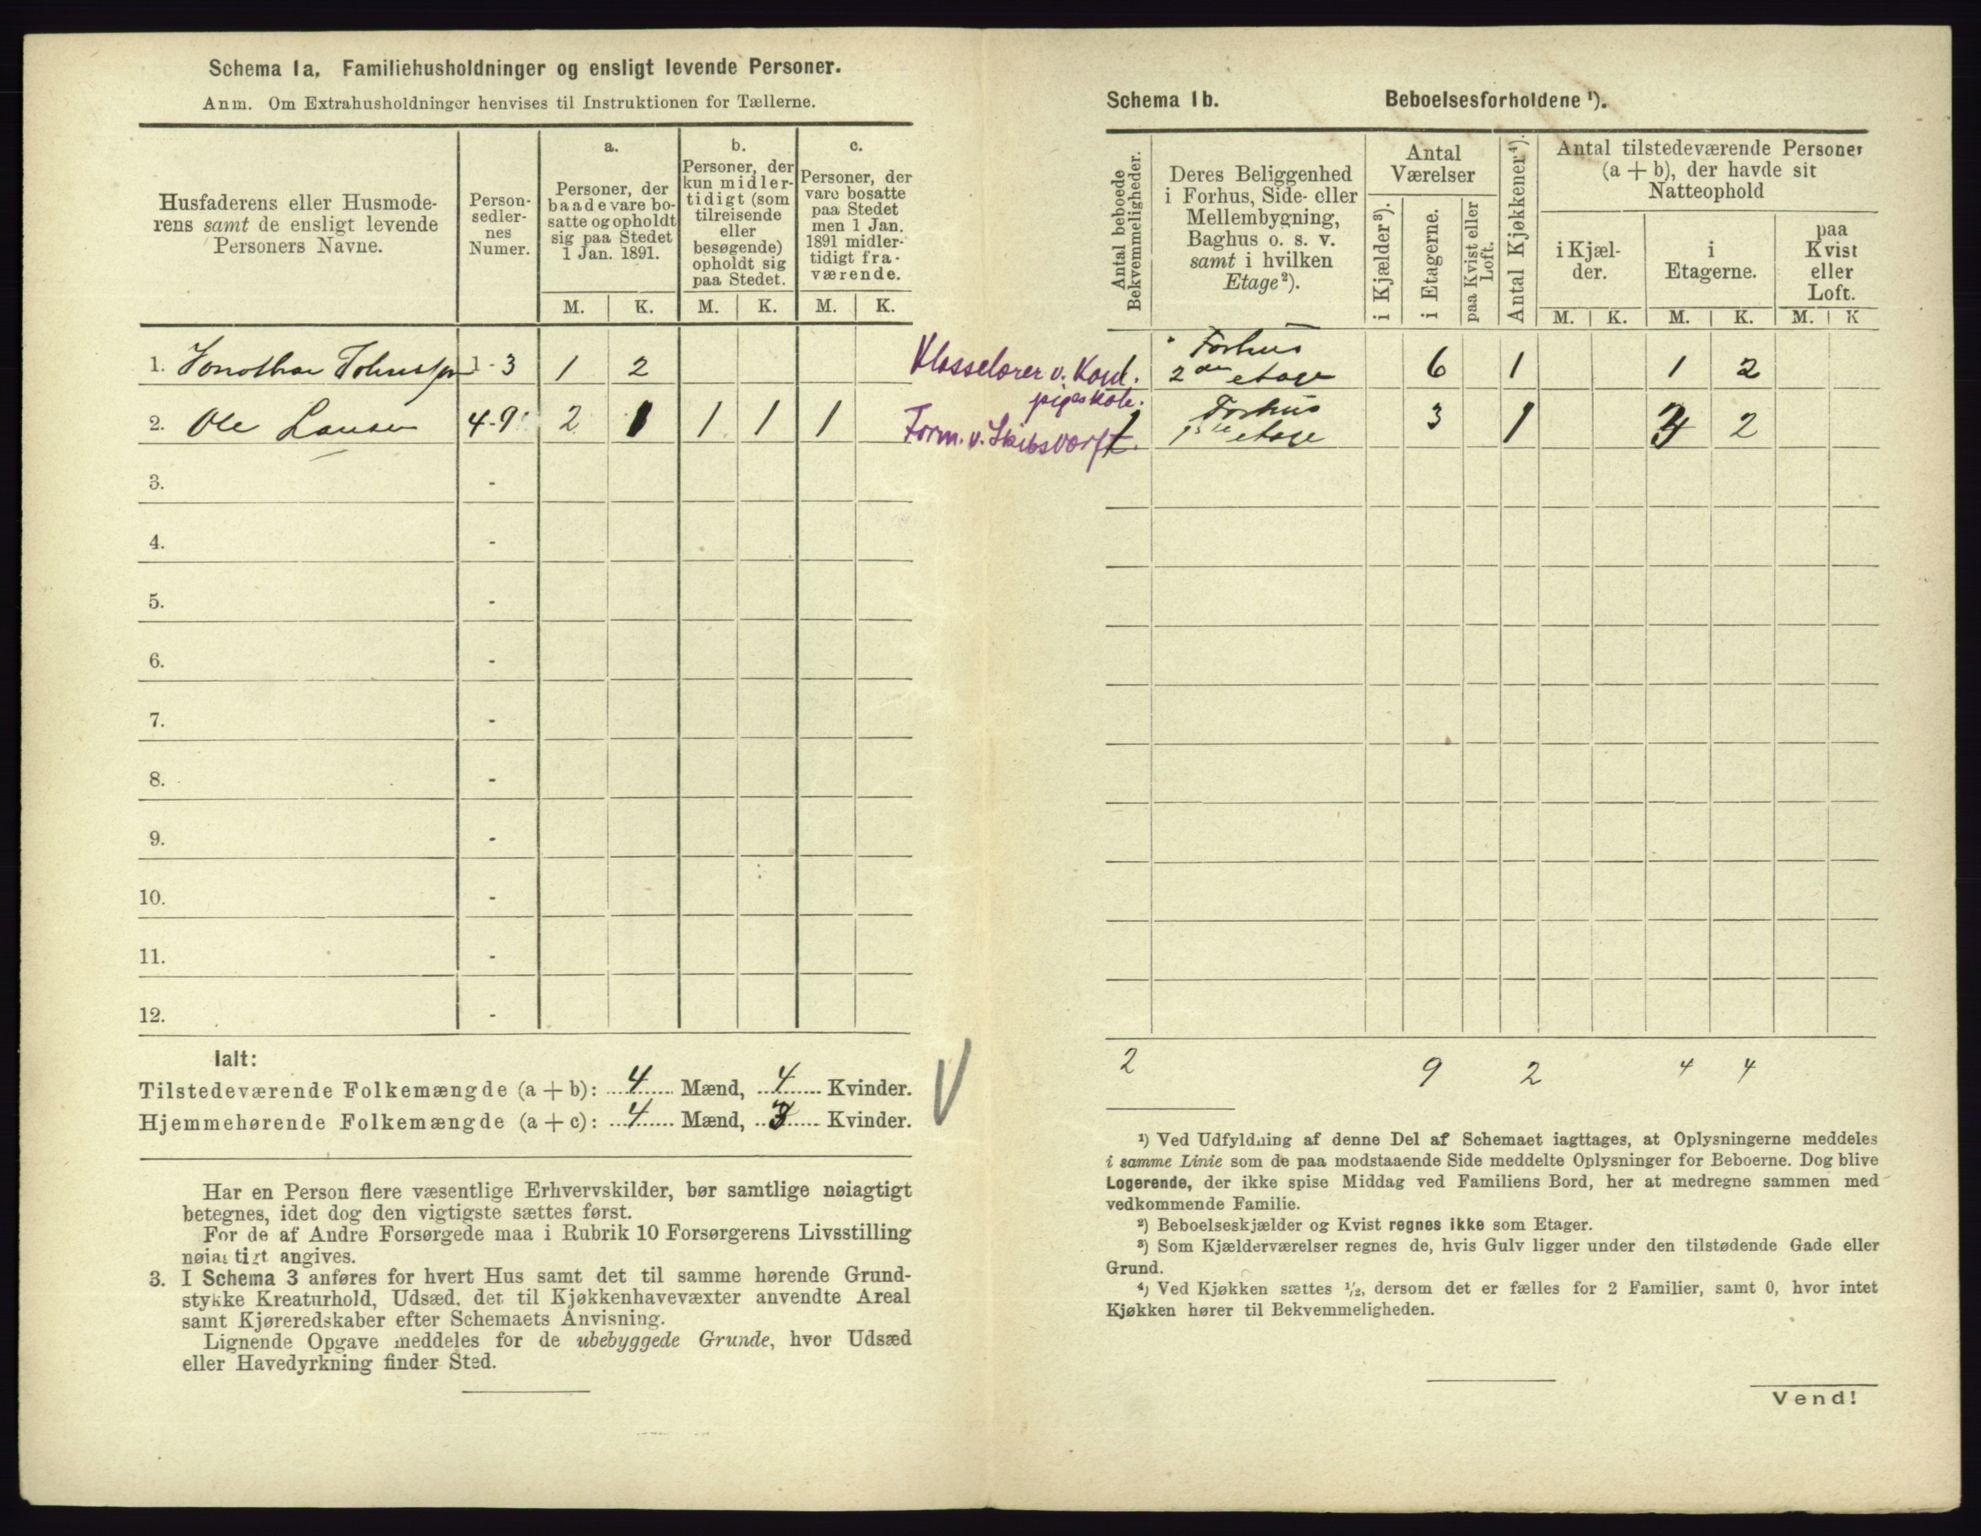 Schema 1a. Familiehusholdninger og ensligt levende Personer.
Anm. Om Extrahusholdninger henvises til Instruktionen for Tællerne.
Husfaderens eller Husmode-
rens samt de ensligt levende
Personers Navne.
Person-
sedler-
nes
Numer.
a.
Personer, der
baade vare bo-
satte og opholdt
sig paa Stedet
1 Jan. 1891.
b.
Personer, der
kun midler-
tidigt (som
tilreisende
eller
besøgende)
opholdt sig
paa Stedet.
c.
Personer, der
vare bosatte
paa Stedet
men 1 Jan.
1891 midler-
tidigt fra-
værende.
M. K. M. K. M. K.
1. Jonathan Johnssen 1-3 1 2
2. Ole Larsen 4-9 2 1 1 1 1
3. -
4. -
5. -
6. -
7. -
8. -
9. -
10. -
11. -
12. -
Ialt:
Tilstedeværende Folkemængde (a + b): 4 Mænd, 4 Kvinder.
Hjemmehørende Folkemængde (a + c): 4 Mænd, 3 Kvinder.
Har en Person flere væsentlige Erhvervskilder, bør samtlige nøiagtigt
betegnes, idet dog den vigtigste sættes først.
For de af Andre Forsørgede maa i Rubrik 10 Forsørgerens Livsstilling
nøiagtigt angives.
3. I Schema 3 anføres for hvert Hus samt det til samme hørende Grund-
stykke Kreaturhold, Udsæd, det til Kjøkkenhavevæxter anvendte Areal
samt Kjøreredskaber efter Schemaets Anvisning.
Lignende Opgave meddeles for de ubebyggede Grunde, hvor Udsæd
eller Havedyrkning finder Sted.
Schema 1b. Beboelsesforholdene ¹).
Antal beboede
Bekvemmeligheder.
Deres Beliggenhed
i Forhus, Side- eller
Mellembygning,
Baghus o. s. v.
samt i hvilken
Etage²).
Antal
Værelser
i Kjælder³).
i Etagerne.
paa Kvist eller
Loft.
Antal Kjøkkener⁴).
Antal tilstedeværende Personer
(a + b), der havde sit
Natteophold
i Kjæl-
der.
i
Etagerne.
paa
Kvist
eller
Loft.
M. K. M. K. M. K
Klasselærer v. Kom.
pigeskole.
1 Forhus
2den etage 6 1 1 2
Form. v. Skibsværft.
1 Forhus
1ste etage 3 1 3 2
2 9 2 4 4
¹) Ved Udfyldning af denne Del af Schemaet iagttages, at Oplysningerne meddeles
i samme Linie som de paa modstaaende Side meddelte Oplysninger for Beboerne. Dog blive
Logerende, der ikke spise Middag ved Familiens Bord, her at medregne sammen med
vedkommende Familie.
²) Beboelseskjælder og Kvist regnes ikke som Etager.
³) Som Kjælderværelser regnes de, hvis Gulv ligger under den tilstødende Gade eller
Grund.
⁴) Ved Kjøkken sættes ¹/₂, dersom det er fælles for 2 Familier, samt 0, hvor intet
Kjøkken hører til Bekvemmeligheden.
Vend!